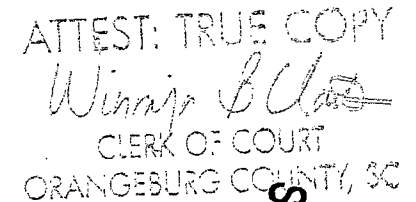 ATTEST: TRUE COPY
Winnifa B Clark
CLERK OF COURT
ORANGEBURG COUNTY, SC
S